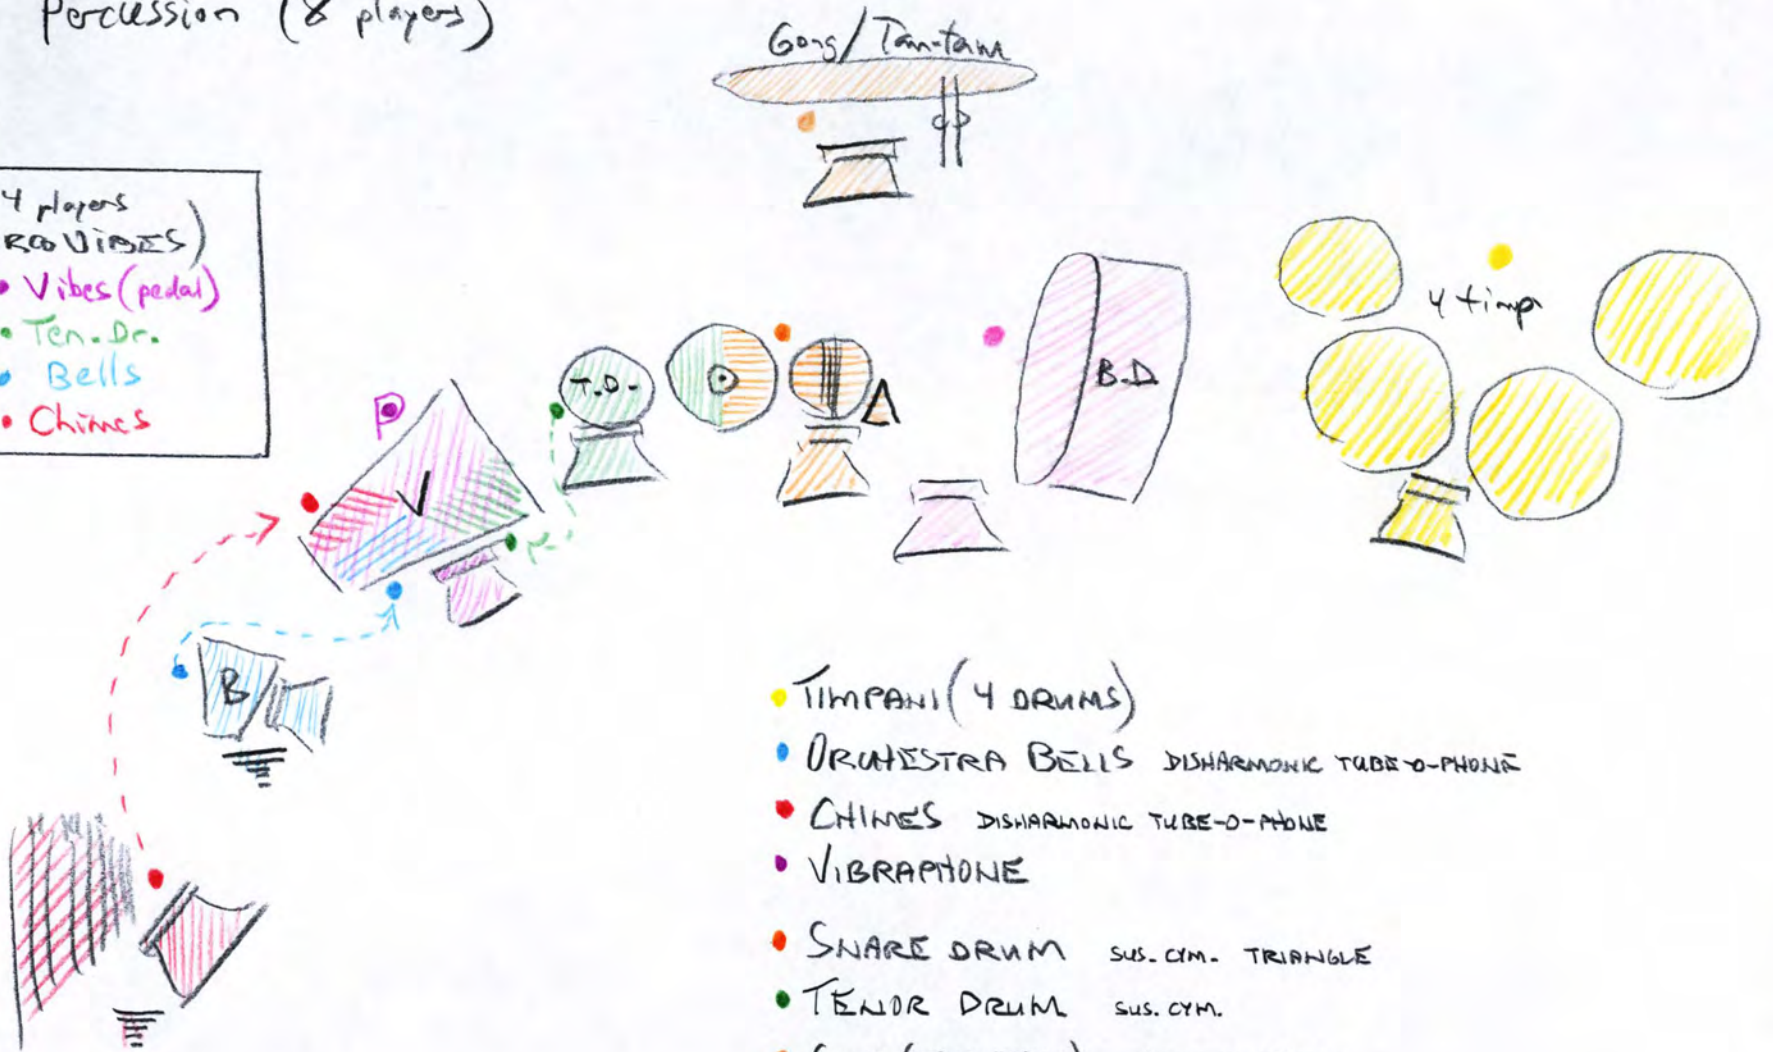 Percussion (8 players)
Gong/Tam-tam
4 players
VIBES)
• Vibes (pedal)
• Ten. Dr.
• Bells
• Chimes
P
V
T.D.
B.D
4 timp
B
• TIMPANI (4 DRUMS)
• ORCHESTRA BELLS DISHARMONIC TUBE-O-PHONE
• CHIMES DISHARMONIC TUBE-O-PHONE
• VIBRAPHONE
• SNARE DRUM SUS. CYM. TRIANGLE
• TENOR DRUM SUS. CYM.